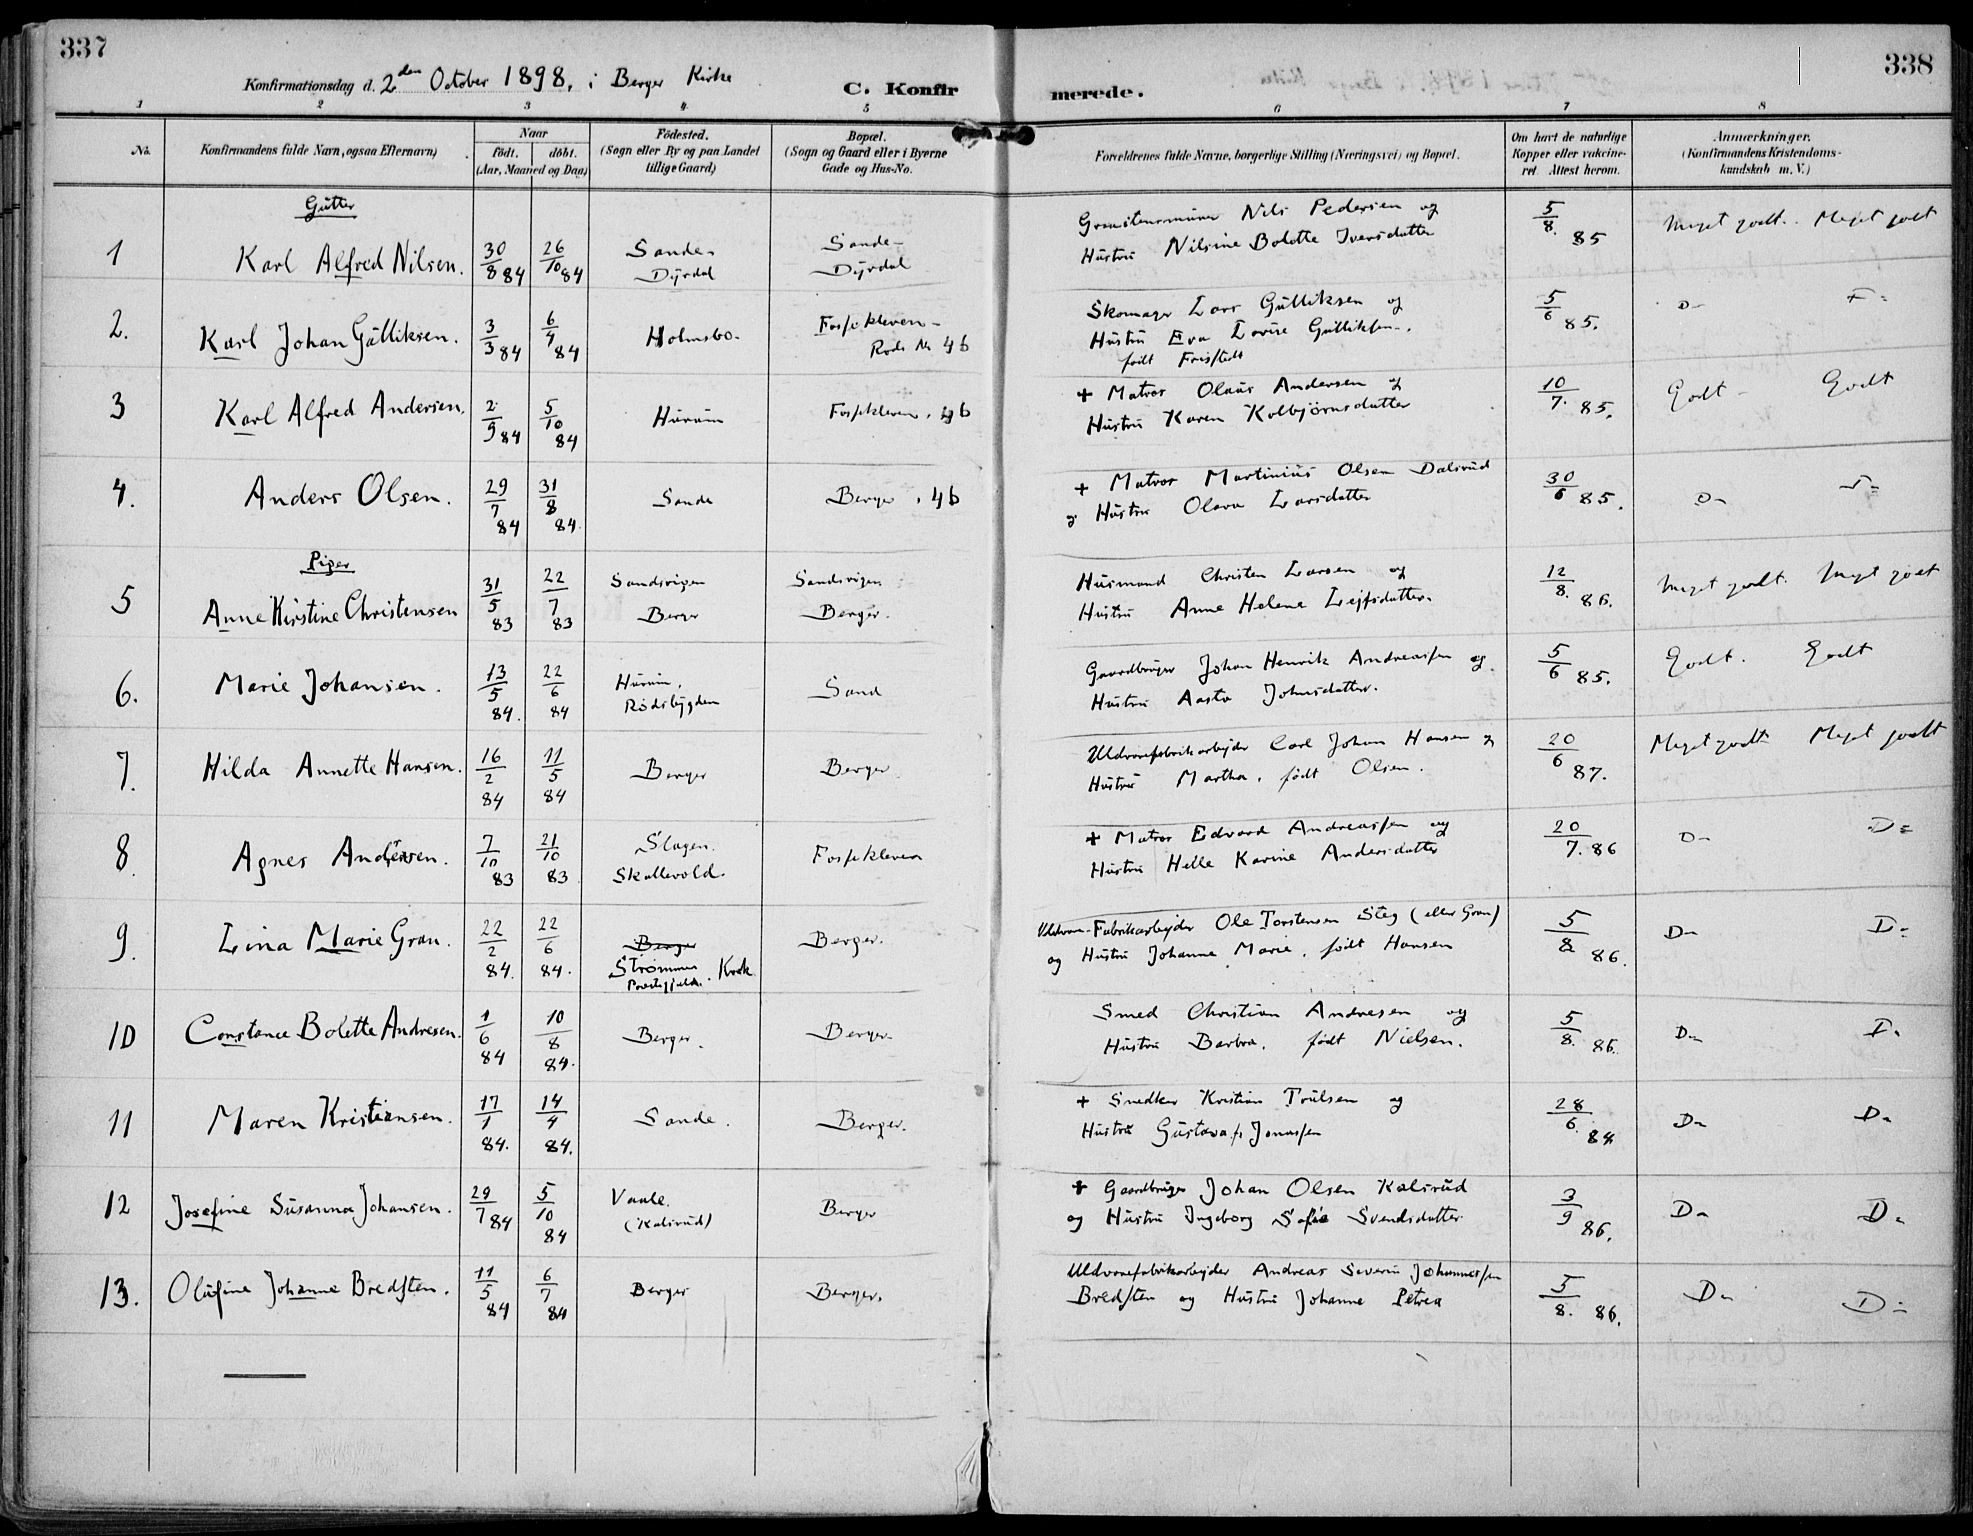 337
338
Konfirmationsdag d. 2den October 1898, i Berger Kirke
C. Konfirmerede.
1 2 3 4 5 6 7 8
No.
Konfirmandens fulde Navn, ogsaa Efternavn)
Naar
født. døbt.
(Aar, Maaned og Dag)
Fødested.
(Sogn eller By og paa Landet
tillige Gaard)
Bopæl.
(Sogn og Gaard eller i Byerne
Gade og Hus-No.
Forældrenes fulde Navne, borgerlige Stilling (Næringsvei) og Bopæl.
Om havt de naturlige
Kopper eller vakcine-
ret. Attest herom.
Anmærkninger.
(Konfirmandens Kristendoms-
kundskab m. V.)
Gutter
1 Karl Alfred Nilsen. 30/8 84 26/10 84 Sande- Dyrdal Sande- Dyrdal
Nils Pedersen og
Hustru Nilsine Bolette Iversdatter
5/8. 85 Meget godt. Meget godt
2. Karl Johan Gulliksen. 3/3 84 6/4 84 Holmsbo. Fossekleven- Rode No 4b
Skomager Lars Gulliksen og
Hustru Eva Lovise Gulliksen.
født Frisstedt
5/6 85. D-
3 Karl Alfred Andersen. 2/9 84 5/10 84 Hurum Fossekleven. 4b
+ Matros Olaus Andersen og
Hustru Karen Kolbjørnsdatter
10/7. 85. Godt - Godt
4. Anders Olsen. 29/7 84 31/8 84. Sande Berger. 4b
+ Matros Martinius Olsen Dalsrud
og Hustru Olava Larsdatter
30/6 85. D-
Piger
5 Anne Kirstine Christensen 31/5 83 22/7 83 Sandsvigen Berger Sandsvigen Berger.
Husmand Christen Larsen og
Hustru Anne Helene Leifsdatter.
12/8. 86. Meget godt. Meget godt
6. Marie Johansen. 13/5 84. 22/6 84 Hurum, Rødsbygden Sand
Gaardbruger Johan Henrik Andreassen og
Hustru Aasta Johnsdatter.
5/6 85. Godt. Godt
7. Hilda Annette Hansen. 16/2 84 11/5 84 Berger Berger
Uldvarefabrikarbejder Carl Johan Hansen og
Hustru Martha, født Olsen.
20/6 87. Meget godt Meget godt
8. Agnes Andersen. 7/10 83 21/10 83 Slagen. Skallevold. Fossekleven
+ Matros Edvard Andreassen og
Hustru Helle Karine Andersdatter
20/7. 86 D- D=
9. Lina Marie Gran. 22/2 84. 22/6 84. Berger Strømmen Præstegjeld. Krok Berger.
Uldvare-Fabrikarbejder Ole Torstensen Steg (eller Gran)
og Hustru Johanne Marie, født Hansen
5/8 86. D- D-
10 Constance Bolette Andresen. 1/6 84 10/8 84. Berger. Berger.
Smed Christian Andresen og
Hustru Barbra, født Nielsen.
5/8. 86. D- D-
11 Maren Kristiansen. 17/1 84. 14/4 84. Sande. Berger.
+ Snedker Kristian Poulsen og
Hustru Gustava f. Jonassen
28/6. 84 D- D-
12 Josefine Susanna Johansen. 29/7 84 5/10 84 Vaale. (Kalsrud) Berger
+ Gaardbruger Johan Olsen Kalsrud
og Hustru Ingeborg Sofie Svendsdatter
3/9 86. D- D-
13. Olufine Johanne Bredsten. 11/5 84 6/7 84 Berger Berger.
Uldvarefabrikarbejder Andreas Severin Johannessen
Bredsten og Hustru Johanne Petrea
5/8. 86. D- D-